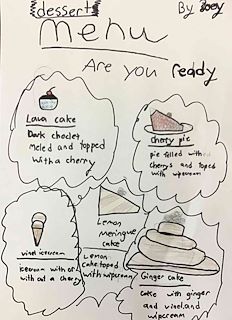 dessert
By Zoey
Menu
Are you ready
Lava cake
Dark choclet
Meled and topped
with a cherry
chery pie
pie filled with
cherys and toped
with wipcream
vinel icecream
icecream with
with a cherry
Lemon
Meringue
cake
Lemon
cake topped
with wipcream
Ginger cake
cake with ginger
and vinel and
wipcream